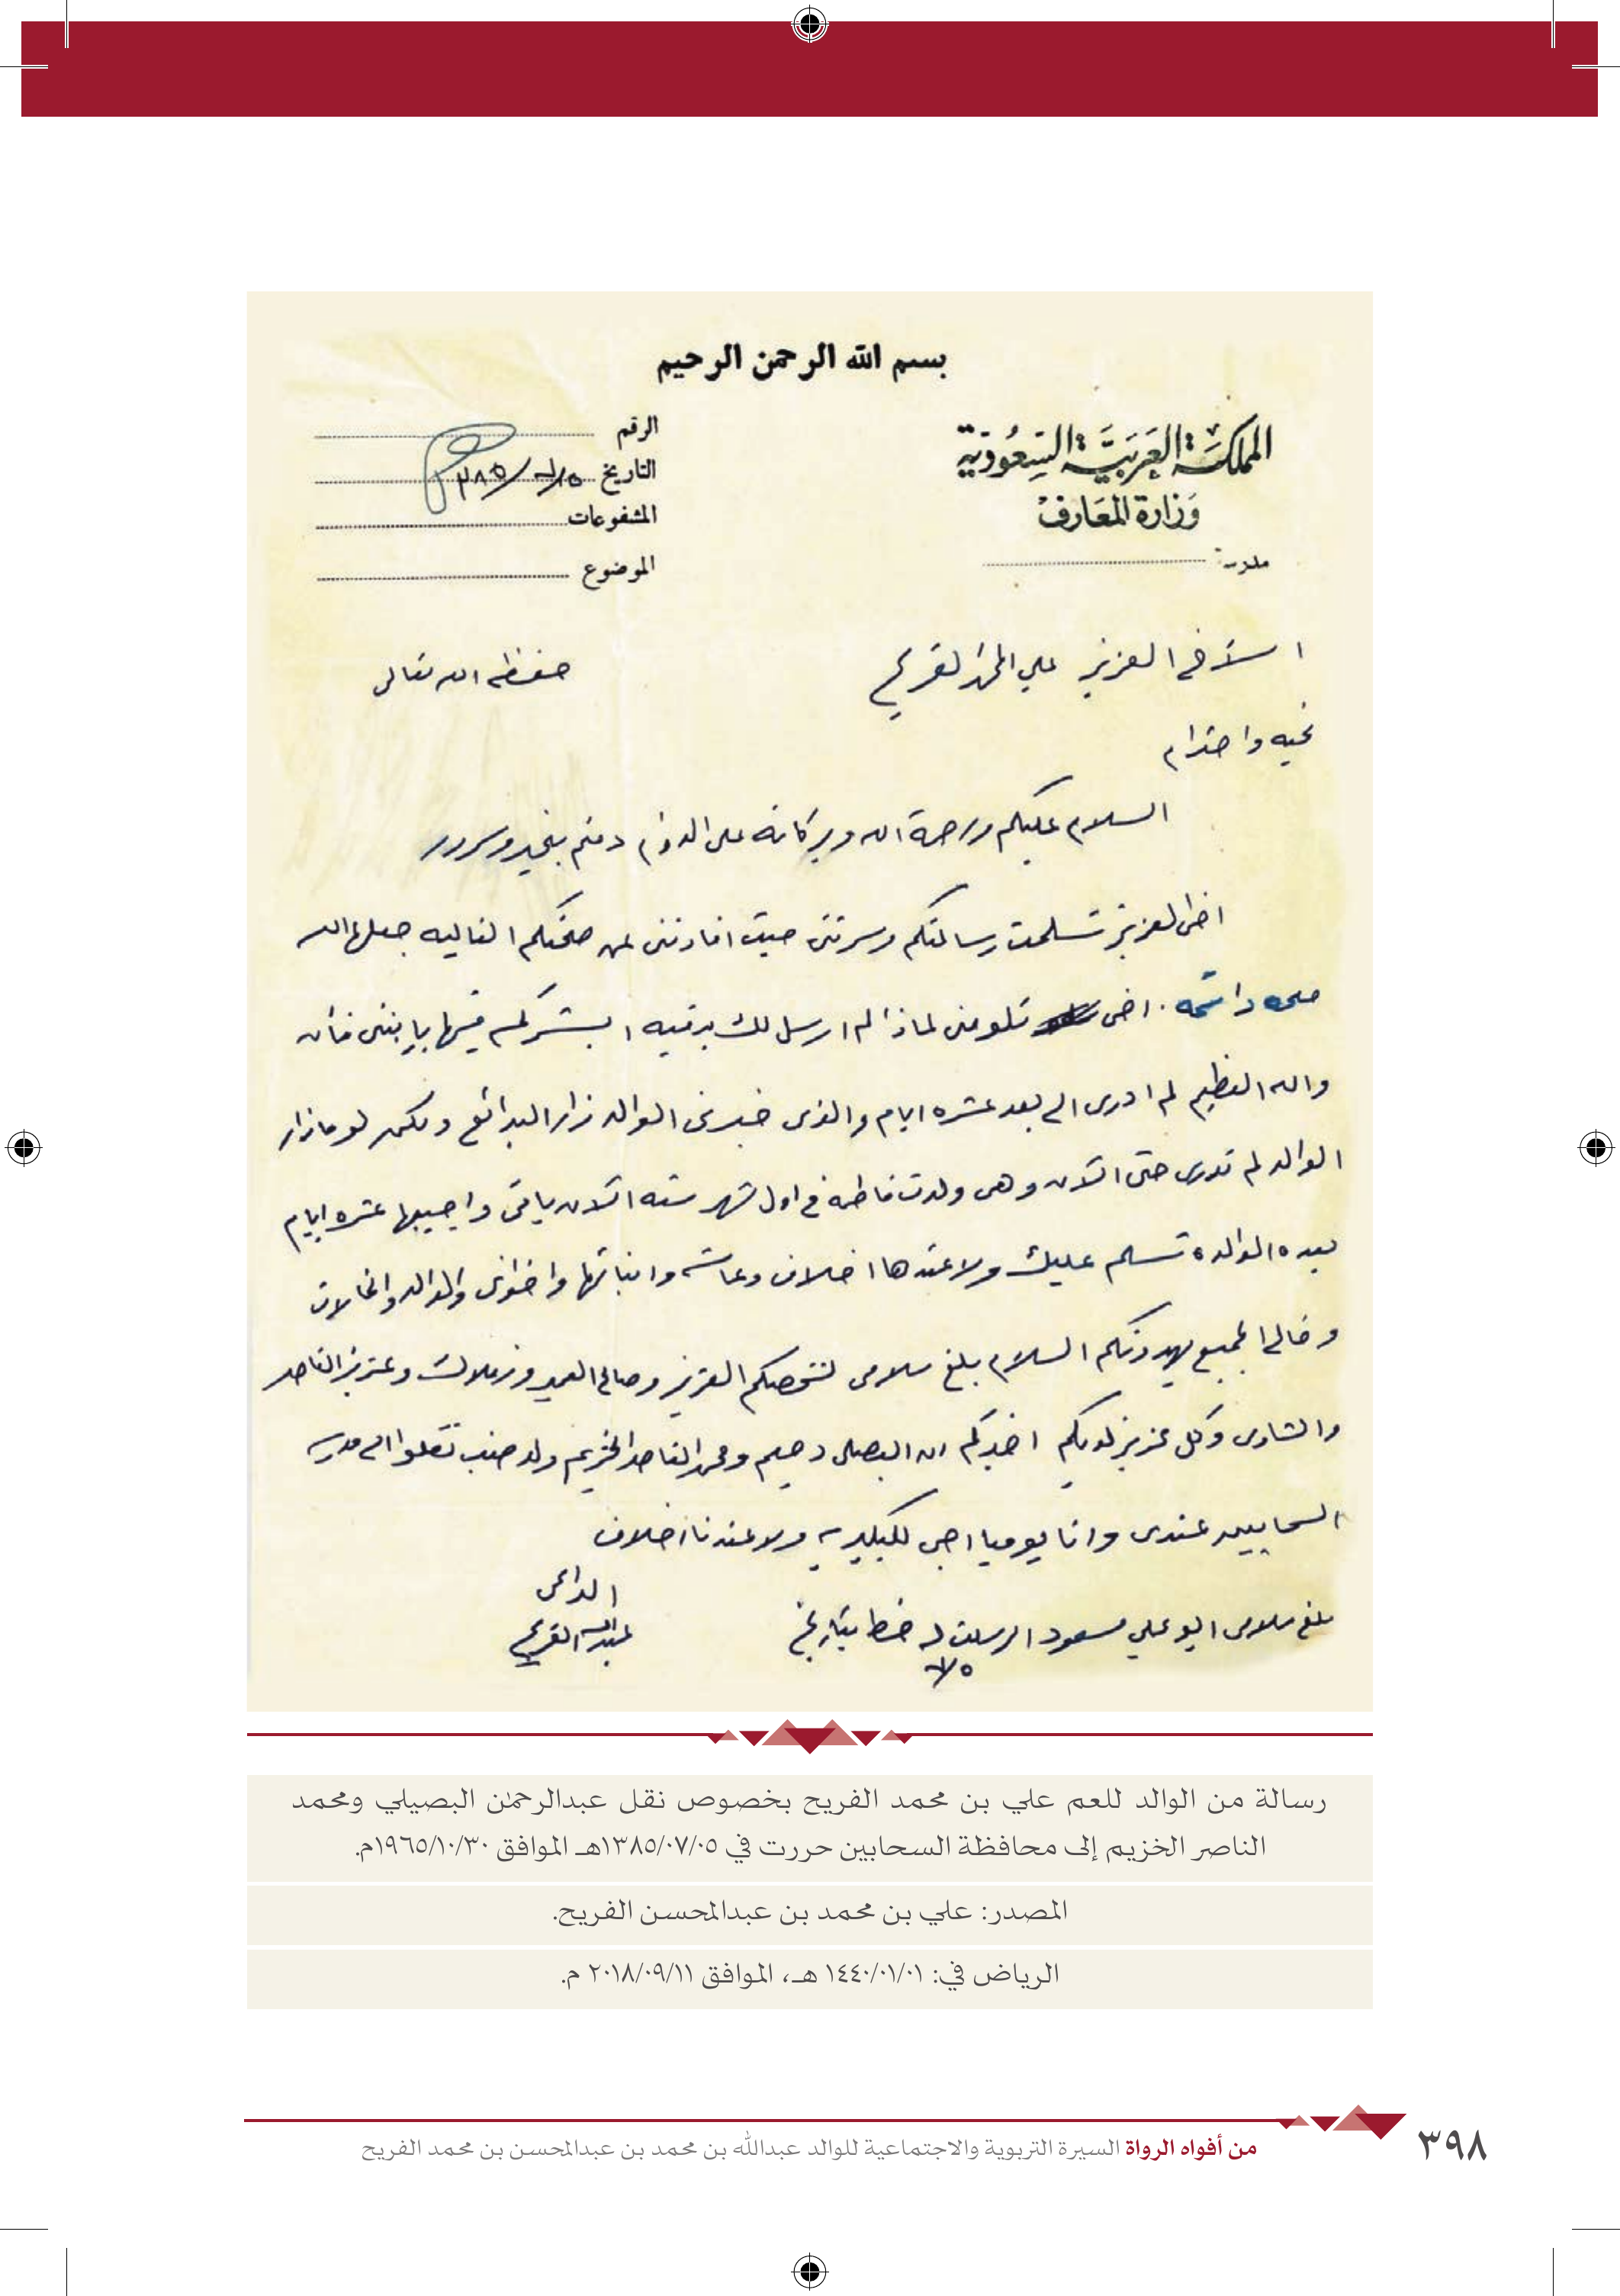 بسم الله الرحمن الرحيم
المملكة العربية السعودية
وزارة المعارف
مدرسة
الرقم
التاريخ
المشفوعات
الموضوع
الاخ العزيز علي المحمد الفريح حفظه الله تعالى
تحيه واحترام
السلام عليكم ورحمة الله وبركاته على الدوام دمتم بخير وسرور
اخي العزيز تسلمت رسالتكم وسرتني حيث افادتني عن صحتكم الغاليه جعلها الله
صحه دائمه . اخي تلومني لماذا لم ارسل لك برقيه ابشركم فيها بإبنتي فأنه
والله العظيم لم ادرى الى بعد عشره ايام والذى خبرنى الوالد زار البدائع ولكن لو مازار
الوالد لم تدرى حتى الآن وهي ولدت فاطمه في اول شهر سته الآن باقي واجيبها عشره ايام
بعده الوالده تسلم عليك ولا عندها اخلاف وعائشه وابناتها واخواني والوالد والخالات
وخالي الجميع يهدونكم السلام بلغ سلامى لشخصكم العزيز وصالح العمير وزملائك وعزيز الناصر
والشاوى وكل عزيز لديكم اخبركم ان البصيلي دحيم ومحمد الناصر الخزيم ولد نقلوا الى مدرسه
السحابين عندى وانا يوميا اجي للبكيريه ولا عندنا اخلاف
بلغ سلامى ابو علي مسعود ارسلت له خط بتاريخ
٧/٥
الداعي
عبدالله الفريح
رسالة من الوالد للعم علي بن محمد الفريح بخصوص نقل عبدالرحمٰن البصيلي ومحمد
الناصر الخزيم إلى محافظة السحابين حررت في ١٣٨٥/٠٧/٠٥هـ الموافق ١٩٦٥/١٠/٣٠م.
المصدر: علي بن محمد بن عبدالمحسن الفريح.
الرياض في: ١٤٤٠/٠١/٠١ هـ، الموافق ٢٠١٨/٠٩/١١ م.
من أفواه الرواة السيرة التربوية والاجتماعية للوالد عبدالله بن محمد بن عبدالمحسن بن محمد الفريح
٣٩٨